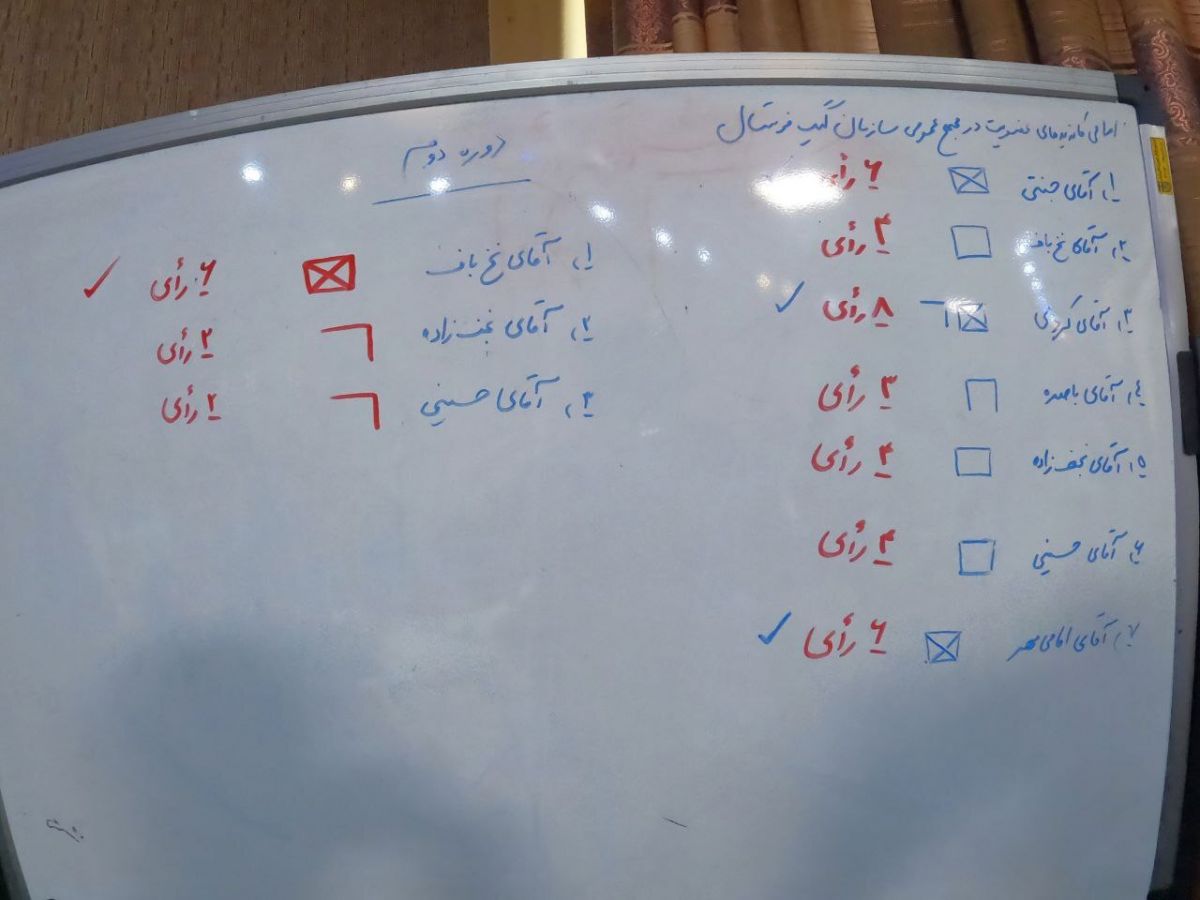 اسامی کاندیدهای عضویت در مجمع عمومی سازمان گیپ فرستال
۱، آقای جنتی ۶ رأی
۲، آقای نخ باف ۴ رأی
۳، آقای کرمی ۸ رأی ✓
٤، آقای باصره ۳ رأی
۵، آقای نجف زاده ۴ رأی
۶، آقای حسینی ۴ رأی
۷، آقای امامی مهر ۶ رأی ✓
دوره دوم
۱، آقای نخ باف ۶ رأی ✓
۲، آقای نجف زاده ۲ رأی
۳، آقای حسینی ۲ رأی